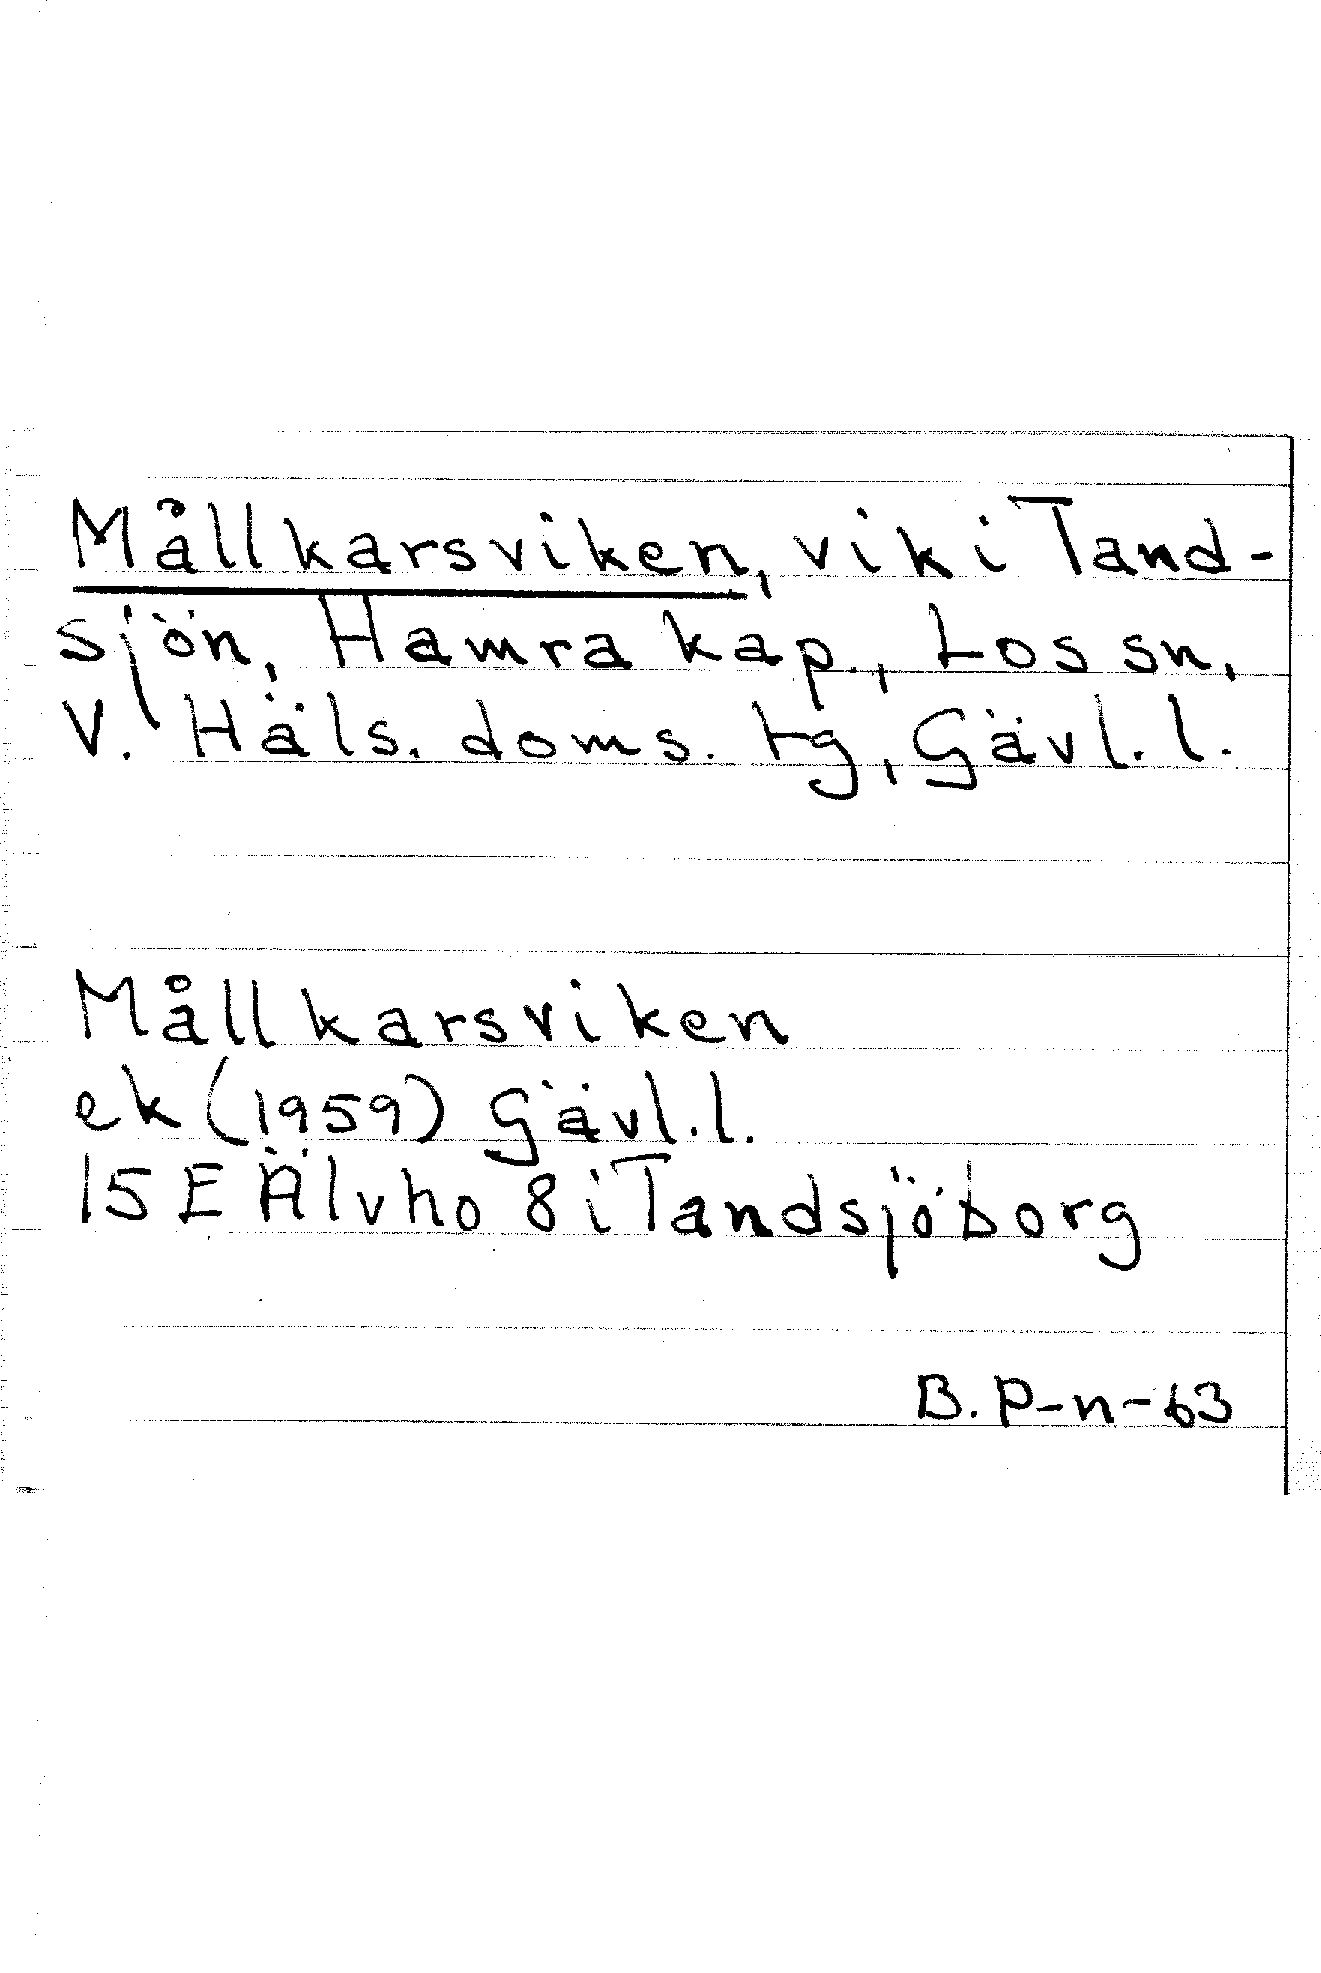 Mållkarsviken, vik i Tand-
sjön, Hamra kap., Los sn,
V. Häls. doms. tg, Gävl. l.
Mållkarsviken
ek (1959) Gävl. l.
15 E Älvho 8 i Tandsjöborg
B. P-n-63